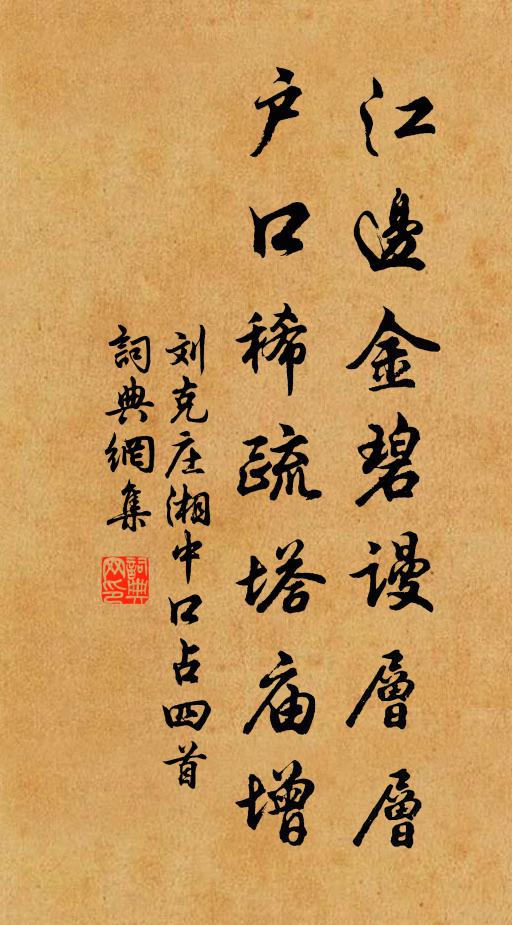 江邊金碧謾層層
户口稀疏塔庙增
刘克庄湘中口占四首
詞典網集
詞典网印